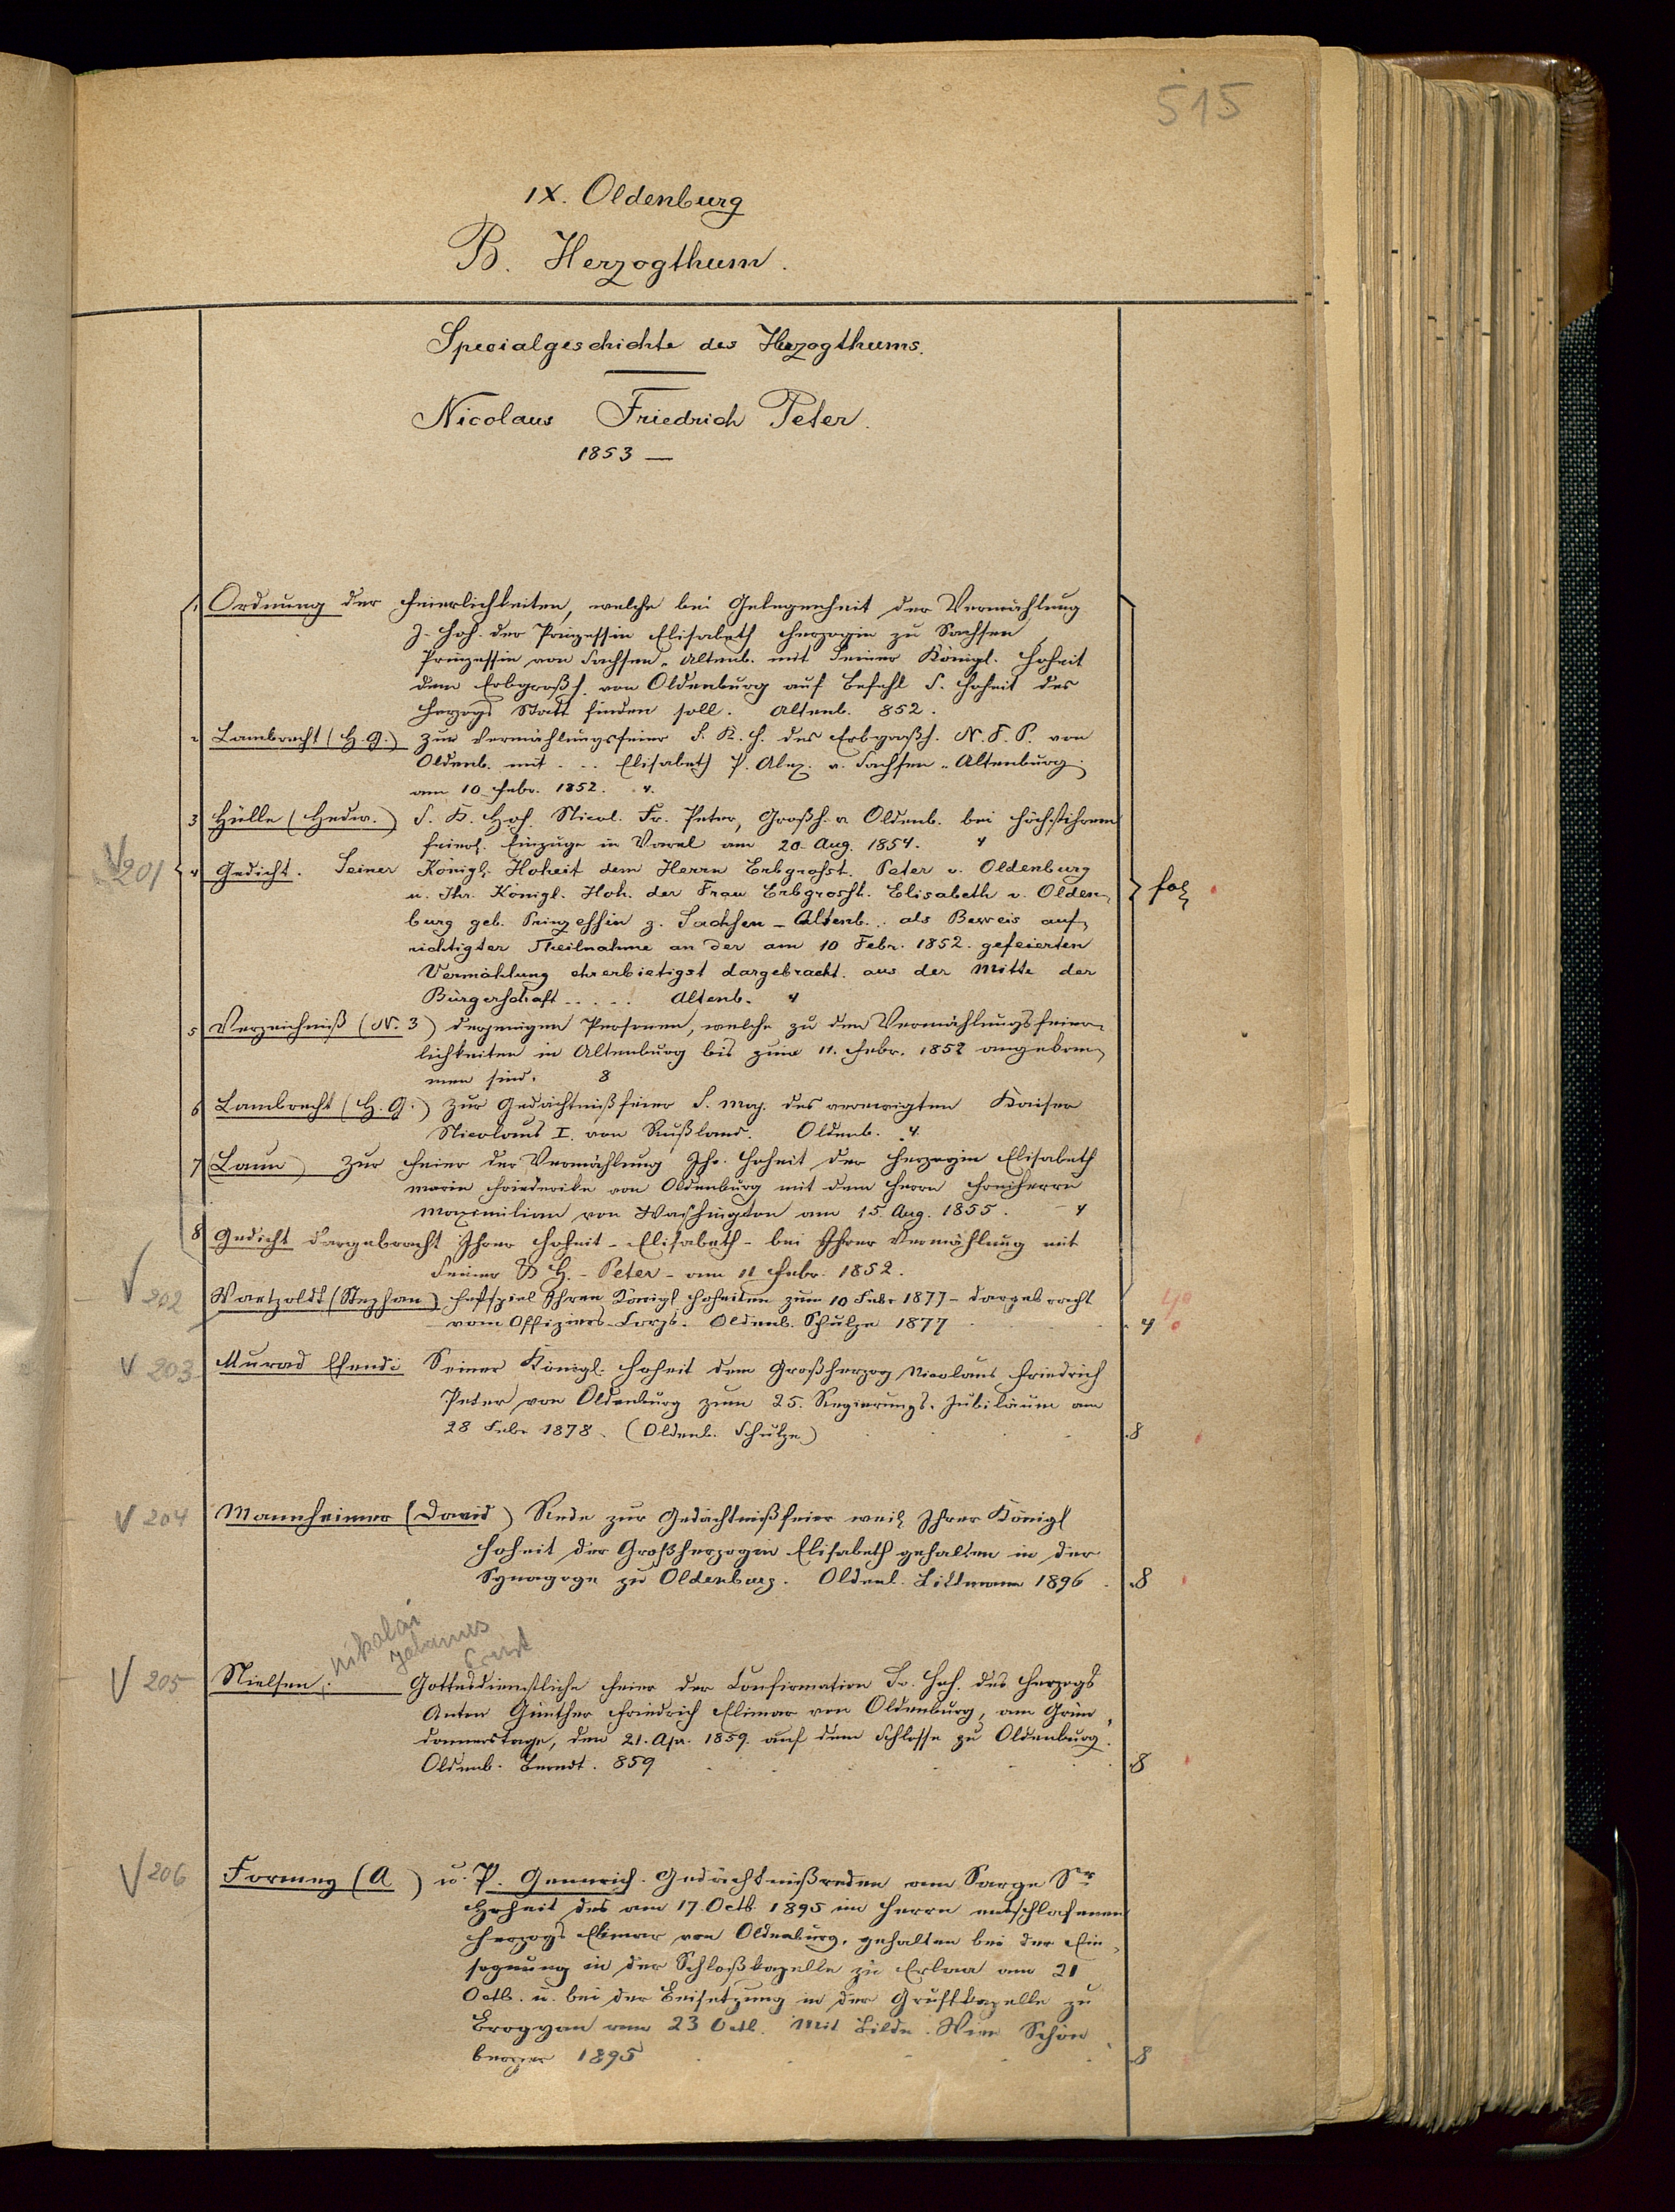 515
IX. Oldenburg
B. Herzogthum.
Specialgeschichte des Herzogthums.
Nicolaus Friedrich Peter.
1853 —
1 Ordnung der Feierlichkeiten, welche bei Gelegenheit der Vermählung
J. Hoh. der Prinzessin Elisabeth Herzogin zu Sachsen,
Prinzessin von Sachsen-Altenb. mit Seiner Königl. Hoheit
dem Erbgroßh. von Oldenburg auf Befehl S. Hoheit des
Herzogs Statt finden soll. Altenb. 852.
2 Lambrecht (H. G.) Zur Vermählungsfeier S. K. H. des Erbgroßh. N. F. P. von
Oldenb. mit . . . Elisabeth P. Alex. v. Sachsen-Altenburg.
am 10 Febr. 1852. 4.
3 Hülle (Hedw.) S. K. Hoh. Nicol. Fr. Peter, Großh. v. Oldenb. bei höchstihrem
feierl. Einzuge in Varel am 20. Aug. 1854. 4
V 201
4 Gedicht. Seiner Königl. Hoheit dem Herrn Erbgrosht. Peter v. Oldenburg
u. Ihr. Königl. Hoh. der Frau Erbgrosht. Elisabeth v. Olden-
burg geb. Prinzessin z. Sachsen-Altenb. . als Beweis auf-
richtigter Theilnahme an der am 10 Febr. 1852. gefeierten
Vermählung ehrerbietigst dargebracht. aus der Mitte der
Bürgerschaft . . . . . Altenb. 4
fol
5 Verzeichniß (N. 3) derjenigen Personen, welche zu den Vermählungsfeier-
lichkeiten in Altenburg bis zum 11. Febr. 1852 angekom-
men sind. 8
6 Lambrecht (H. G.) Zur Gedächtnißfeier S. Maj. des verewigten Kaiser
Nicolaus I. von Rußland. Oldenb. 4.
7 (Laun) Zur Feier der Vermählung Ihr. Hoheit der Herzogin Elisabeth
Marie Friederike von Oldenburg mit dem Herrn Freiherrn
Maximilian von Washington am 15. Aug. 1855. 4
8 Gedicht dargebracht Ihrer Hoheit - Elisabeth - bei Ihrer Vermählung mit
Seiner K H. - Peter - am 11 Febr. 1852.
V 202 Waetzoldt (Stephan) Festspiel Ihren Königl Hoheiten zum 10 Febr 1877 - dargebracht
vom Offiziers-Corps. Oldenb. Schulze 1877 . . 4
4o
V 203 Murad Efendi Seiner Königl. Hoheit dem Großherzog Nicolaus Friedrich
Peter von Oldenburg zum 25. Regierungs-Jubiläum am
28 Febr 1878. (Oldenb. Schulze.) . . 8
V 204 Mannheimer (David) Rede zur Gedächtnißfeier weil Ihrer Königl
Hoheit der Großherzogin Elisabeth gehalten in der
Synagoge zu Oldenburg. Oldenb. Littmann 1896 . 8
Nikolai
Johannes
Ernst
V 205 Nielsen. Gottesdienstliche Feier der Confirmation Sr. Hoh. des Herzogs
Anton Günther Friedrich Elimar von Oldenburg, am Grün-
donnerstage, den 21. Apr. 1859. auf dem Schlosse zu Oldenburg.
Oldenb. Berndt. 859 . . . 8
V 206 Formey (A) u. P. Gennrich. Gedächtnißreden am Sarge Sr
Hoheit des am 17. Octb. 1895 im Herrn entschlafenen
Herzogs Elimar von Oldenburg, gehalten bei der Ein-
segnung in der Schloßkapelle zu Erlaa am 21
Octb. u. bei der Beisetzung in der Gruftkapelle zu
Brogyan am 23 Octb. Mit Bilde. Wien Schön
berger 1895 . . . 8